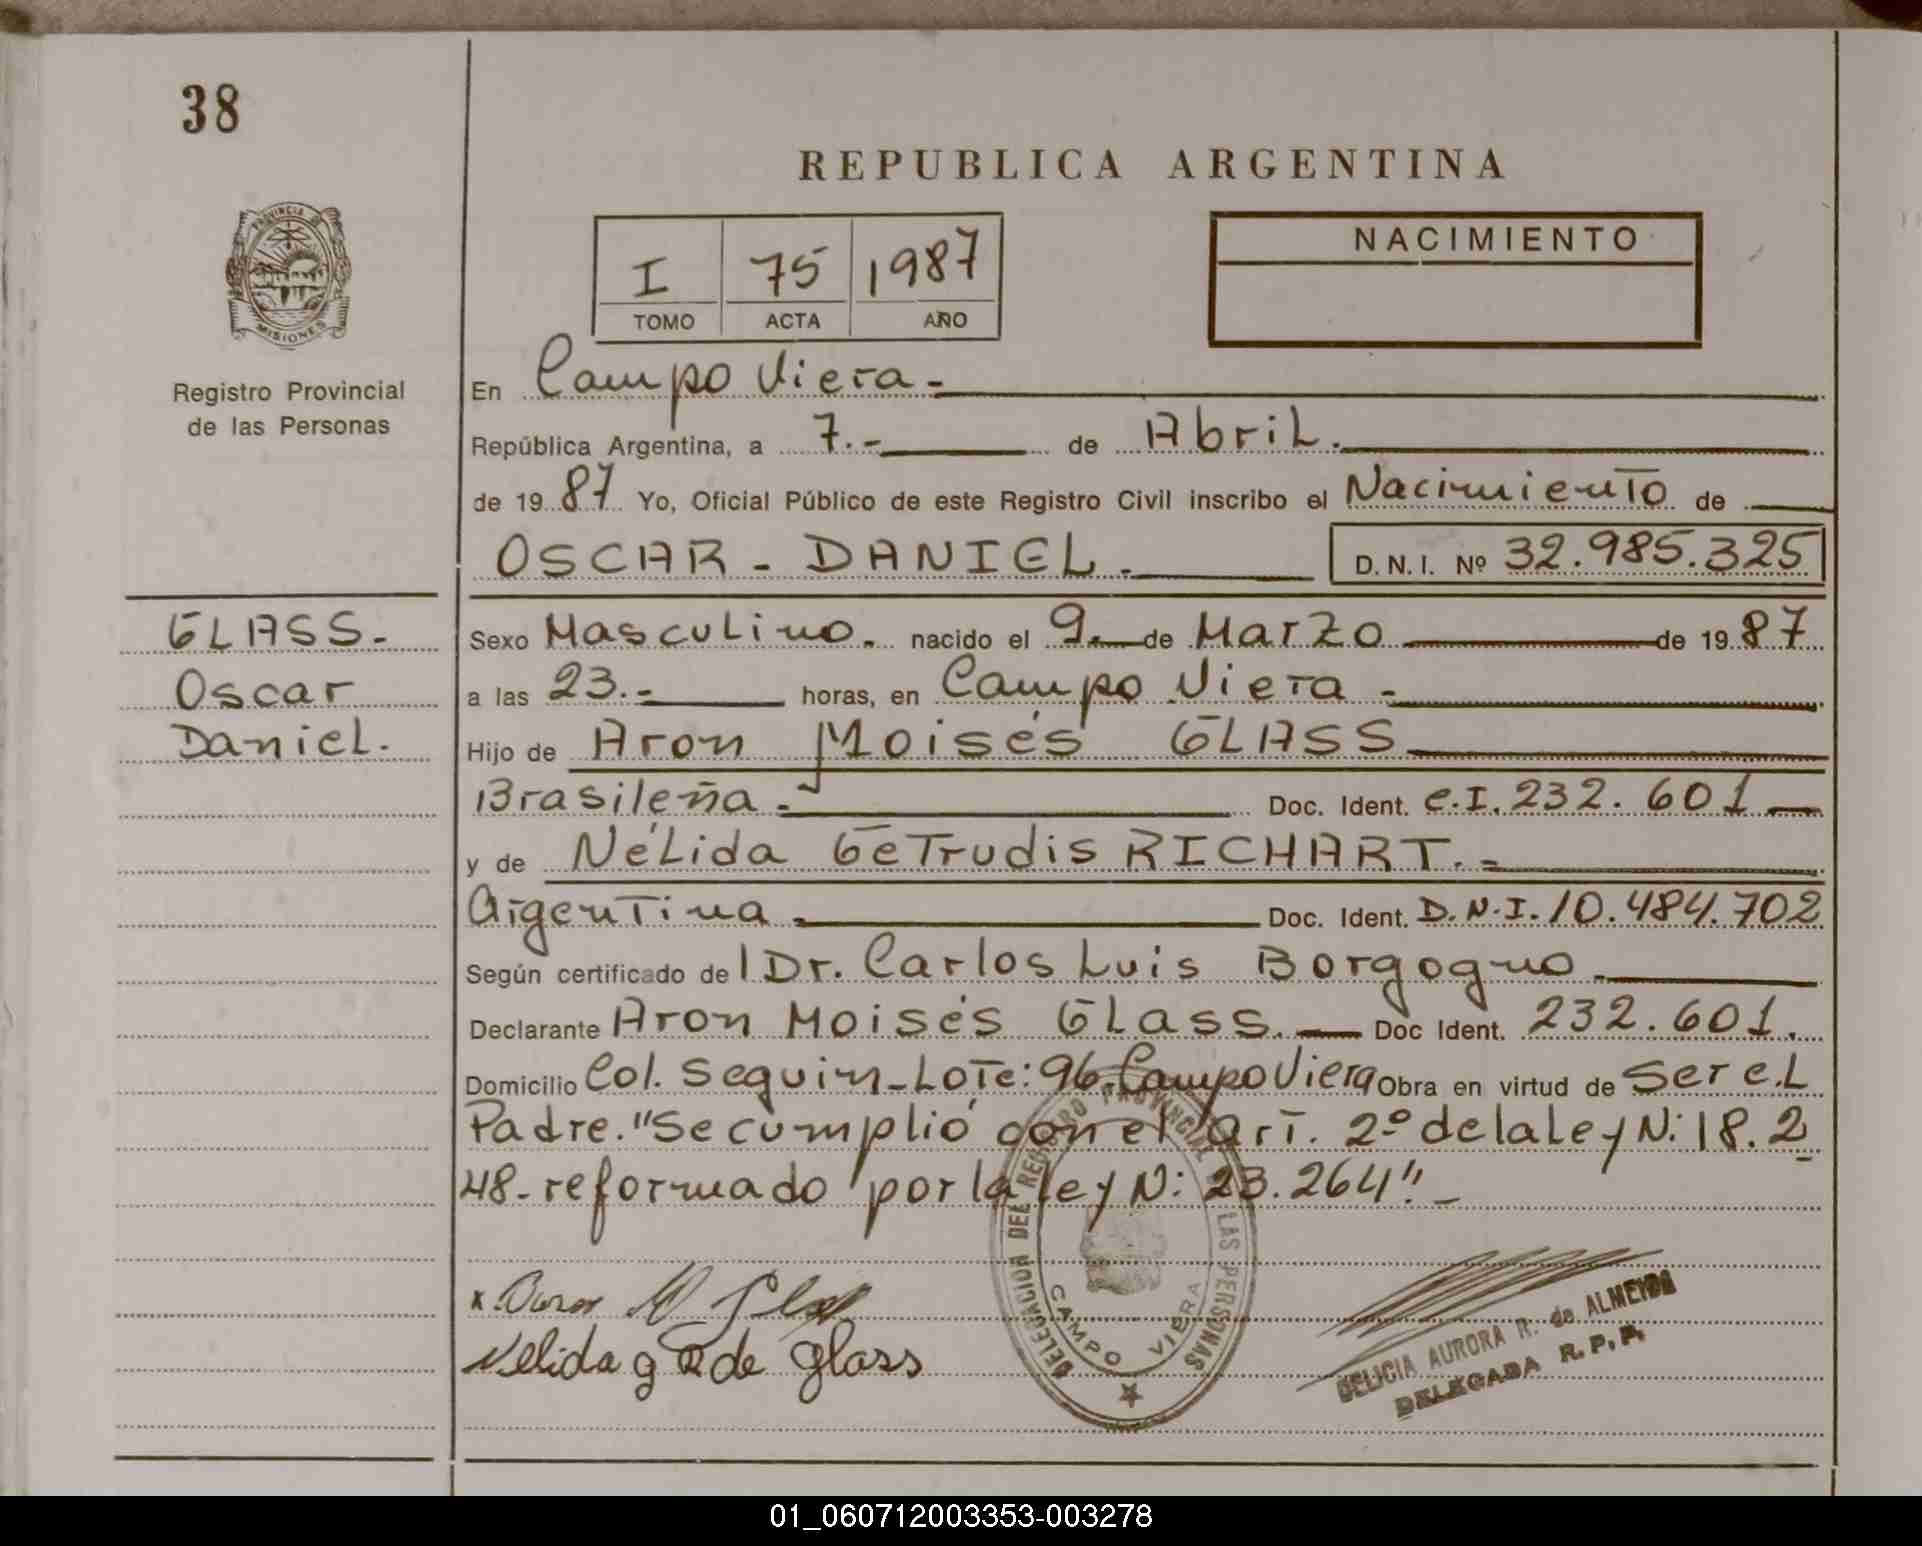 38
REPUBLICA ARGENTINA
PROVINCIA DE
MISIONES
Registro Provincial
de las Personas
I 75 1987
TOMO ACTA AÑO
NACIMIENTO
En Campo Viera.-
República Argentina, a 7.- de Abril.
de 1987 Yo, Oficial Público de este Registro Civil inscribo el Nacimiento de
OSCAR - DANIEL.- D.N.I. Nº 32.985.325
GLASS.-
Oscar
Daniel.
Sexo Masculino. nacido el 9.- de Marzo de 1987
a las 23.- horas, en Campo Viera -
Hijo de Aron Moisés GLASS
Brasileña.- Doc. Ident. C.I. 232.601
y de Nélida GeTrudis RICHART.-
Argentina - Doc. Ident. D.N.I. 10.484.702
Según certificado de l Dr. Carlos Luis Borgogno.
Declarante Aron Moisés Glass. Doc Ident. 232.601.
Domicilio Col. Seguin-Lote: 96. Campo Viera Obra en virtud de Ser el
Padre. "Se cumplió con el art. 2º de la ley N: 18.2
48.- reformado por la ley N: 23.264".-
DELEGACION DEL REGISTRO PROVINCIAL LAS PERSONAS
CAMPO VIERA
Nelida g R de glass
DELICIA AURORA R. de ALMEIDA
DELEGADA R.P.P.
01_060712003353-003278